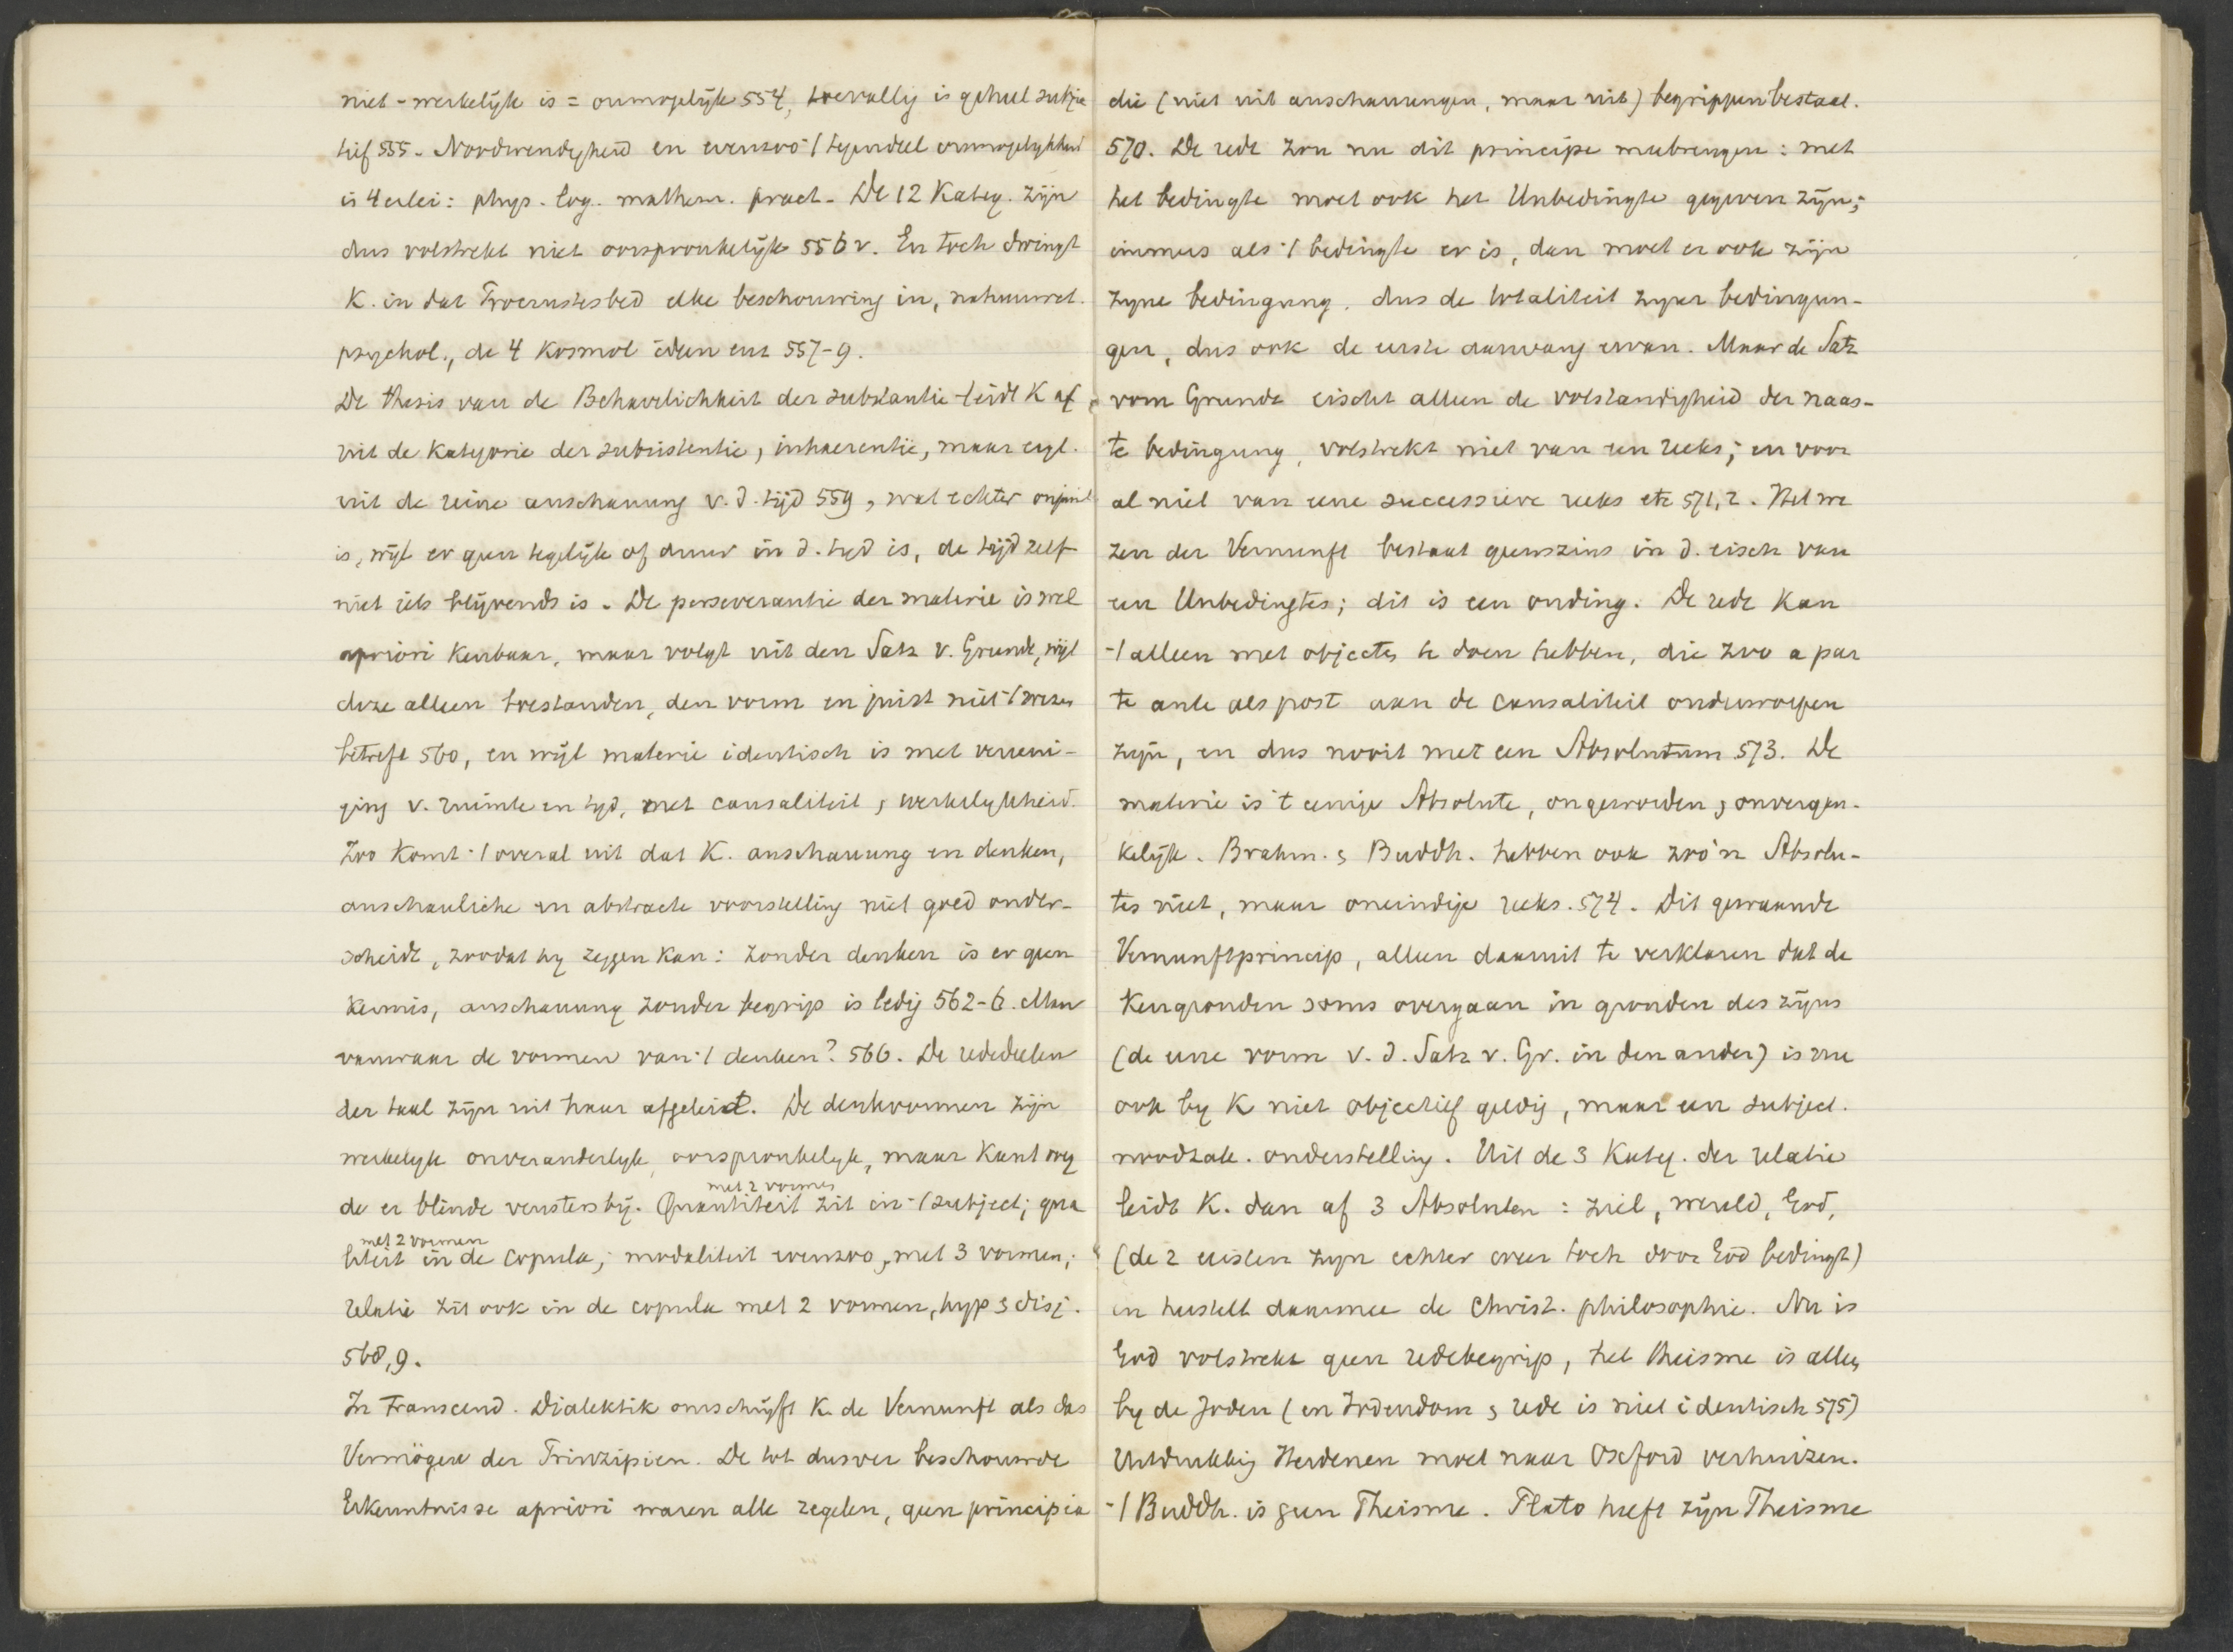 niet-werkelijk is = onmogelijk 554, toevallig is geheel subjec
tief 555. Noodwendigheid en evenzoo 't tegendeel onmogelykheid
is 4erlei: phys. log. mathem. pract. De 12 Kateg. zijn
dus volstrekt niet oorspronkelijk 556v. En toch dwingt
K. in dat Procrustesbed elke beschouwing in, natuurwet.
psychol., de 4 Kosmol ideen enz 557-9.
De thesis van de Beharrlichkeit der substantie leidt K af
uit de Kategorie der subsistentie, inhaerentie, maar eigl.
uit de reine anschauung v. d. tijd 559, wat echter onjuist
is, wijl er geen tegelijk of duur in d. tijd is, de tijd zelf
niet iets blijvends is. De perseverantie der materie is wel
apriori kenbaar, maar volgt uit den Satz v. Grunde, wijl
deze alleen toestanden, den vorm en juist niet 't wezen
betreft 560, en wijl materie identisch is met vereeni-
ging v. ruimte en tyd, met causaliteit, werkelykheid.
Zoo komt 't overal uit dat K. anschauung en denken,
anschauliche en abstracte voorstelling niet goed onder-
scheidt, zoodat hy zeggen kan: zonder denken is er geen
kennis, anschauung zonder begrip is ledig 562-6. Maar
vanwaar de vormen van 't denken? 566. De rededeelen
der taal zijn uit haar afgeleid. De denkvormen zijn
werkelyk onveranderlyk, oorspronkelyk, maar Kant voeg
met 2 vormen
de er blinde vensters bij. Quantiteit zit in 't subject; qua
met 2 vormen
liteit in de copula; modaliteit evenzoo, met 3 vormen;
relatie zit ook in de copula met 2 vormen, hyp & disj.
568,9.
In Transcend. Dialektik omschrijft K. de Vernunft als das
Vermögen der Prinzipien. De tot dusver beschouwde
Erkenntnisse apriori waren alle regelen, geen principia
die (niet uit anschauungen, maar uit) begrippen bestaat.
570. De rede zou nu dit principe meebrengen: met
het bedingte moet ook het Unbedingte gegeven zijn;
immers als 't bedingte er is, dan moet er ook zijn
zyne bedingung, dus de totaliteit zyner bedingun-
gen, dus ook de eerste aanvang ervan. Maar de Satz
vom Grunde eischt alleen de volstandigheid der naas-
te bedingung, volstrekt niet van een reeks; en voor
al niet van eene successieve reeks etc 571,2. Het we
zen der Vernunft bestaat geenszins in d. eisch van
een Unbedingtes; dit is een onding. De rede kan
't alleen met objecten te doen hebben, die zoo a par
te ante als post aan de causaliteit onderworpen
zijn, en dus nooit met een Absolutum 573. De
materie is 't eenige Absolute, ongeworden & onvergan-
kelijk. Brahm. & Buddh. hebben ook zoo'n Absolu-
tes niet, maar oneindige reeks. 574. Dit gewaande
Vernunftprincip, alleen daaruit te verklaren dat de
kengronden soms overgaan in gronden des zijns
(de eene vorm v. d. Satz v. Gr. in den ander) is nu
ook by K niet objectief geldig, maar een subject.
noodzak. onderstelling. Uit de 3 Kateg. der relatie
leidt K. dan af 3 Absoluten: ziel, wereld, God,
(de 2 eersten zyn echter even toch door God bedingt)
en herstelt daarmee de Christ. philosophie. Nu is
God volstrekt geen redebegrip, het theisme is alleen
by de Joden (en Jodendom & rede is niet identisch 575)
Uitdrukking Heidenen moet naar Oxford verhuizen.
't Buddh. is geen Theisme. Plato heeft zijn Theisme